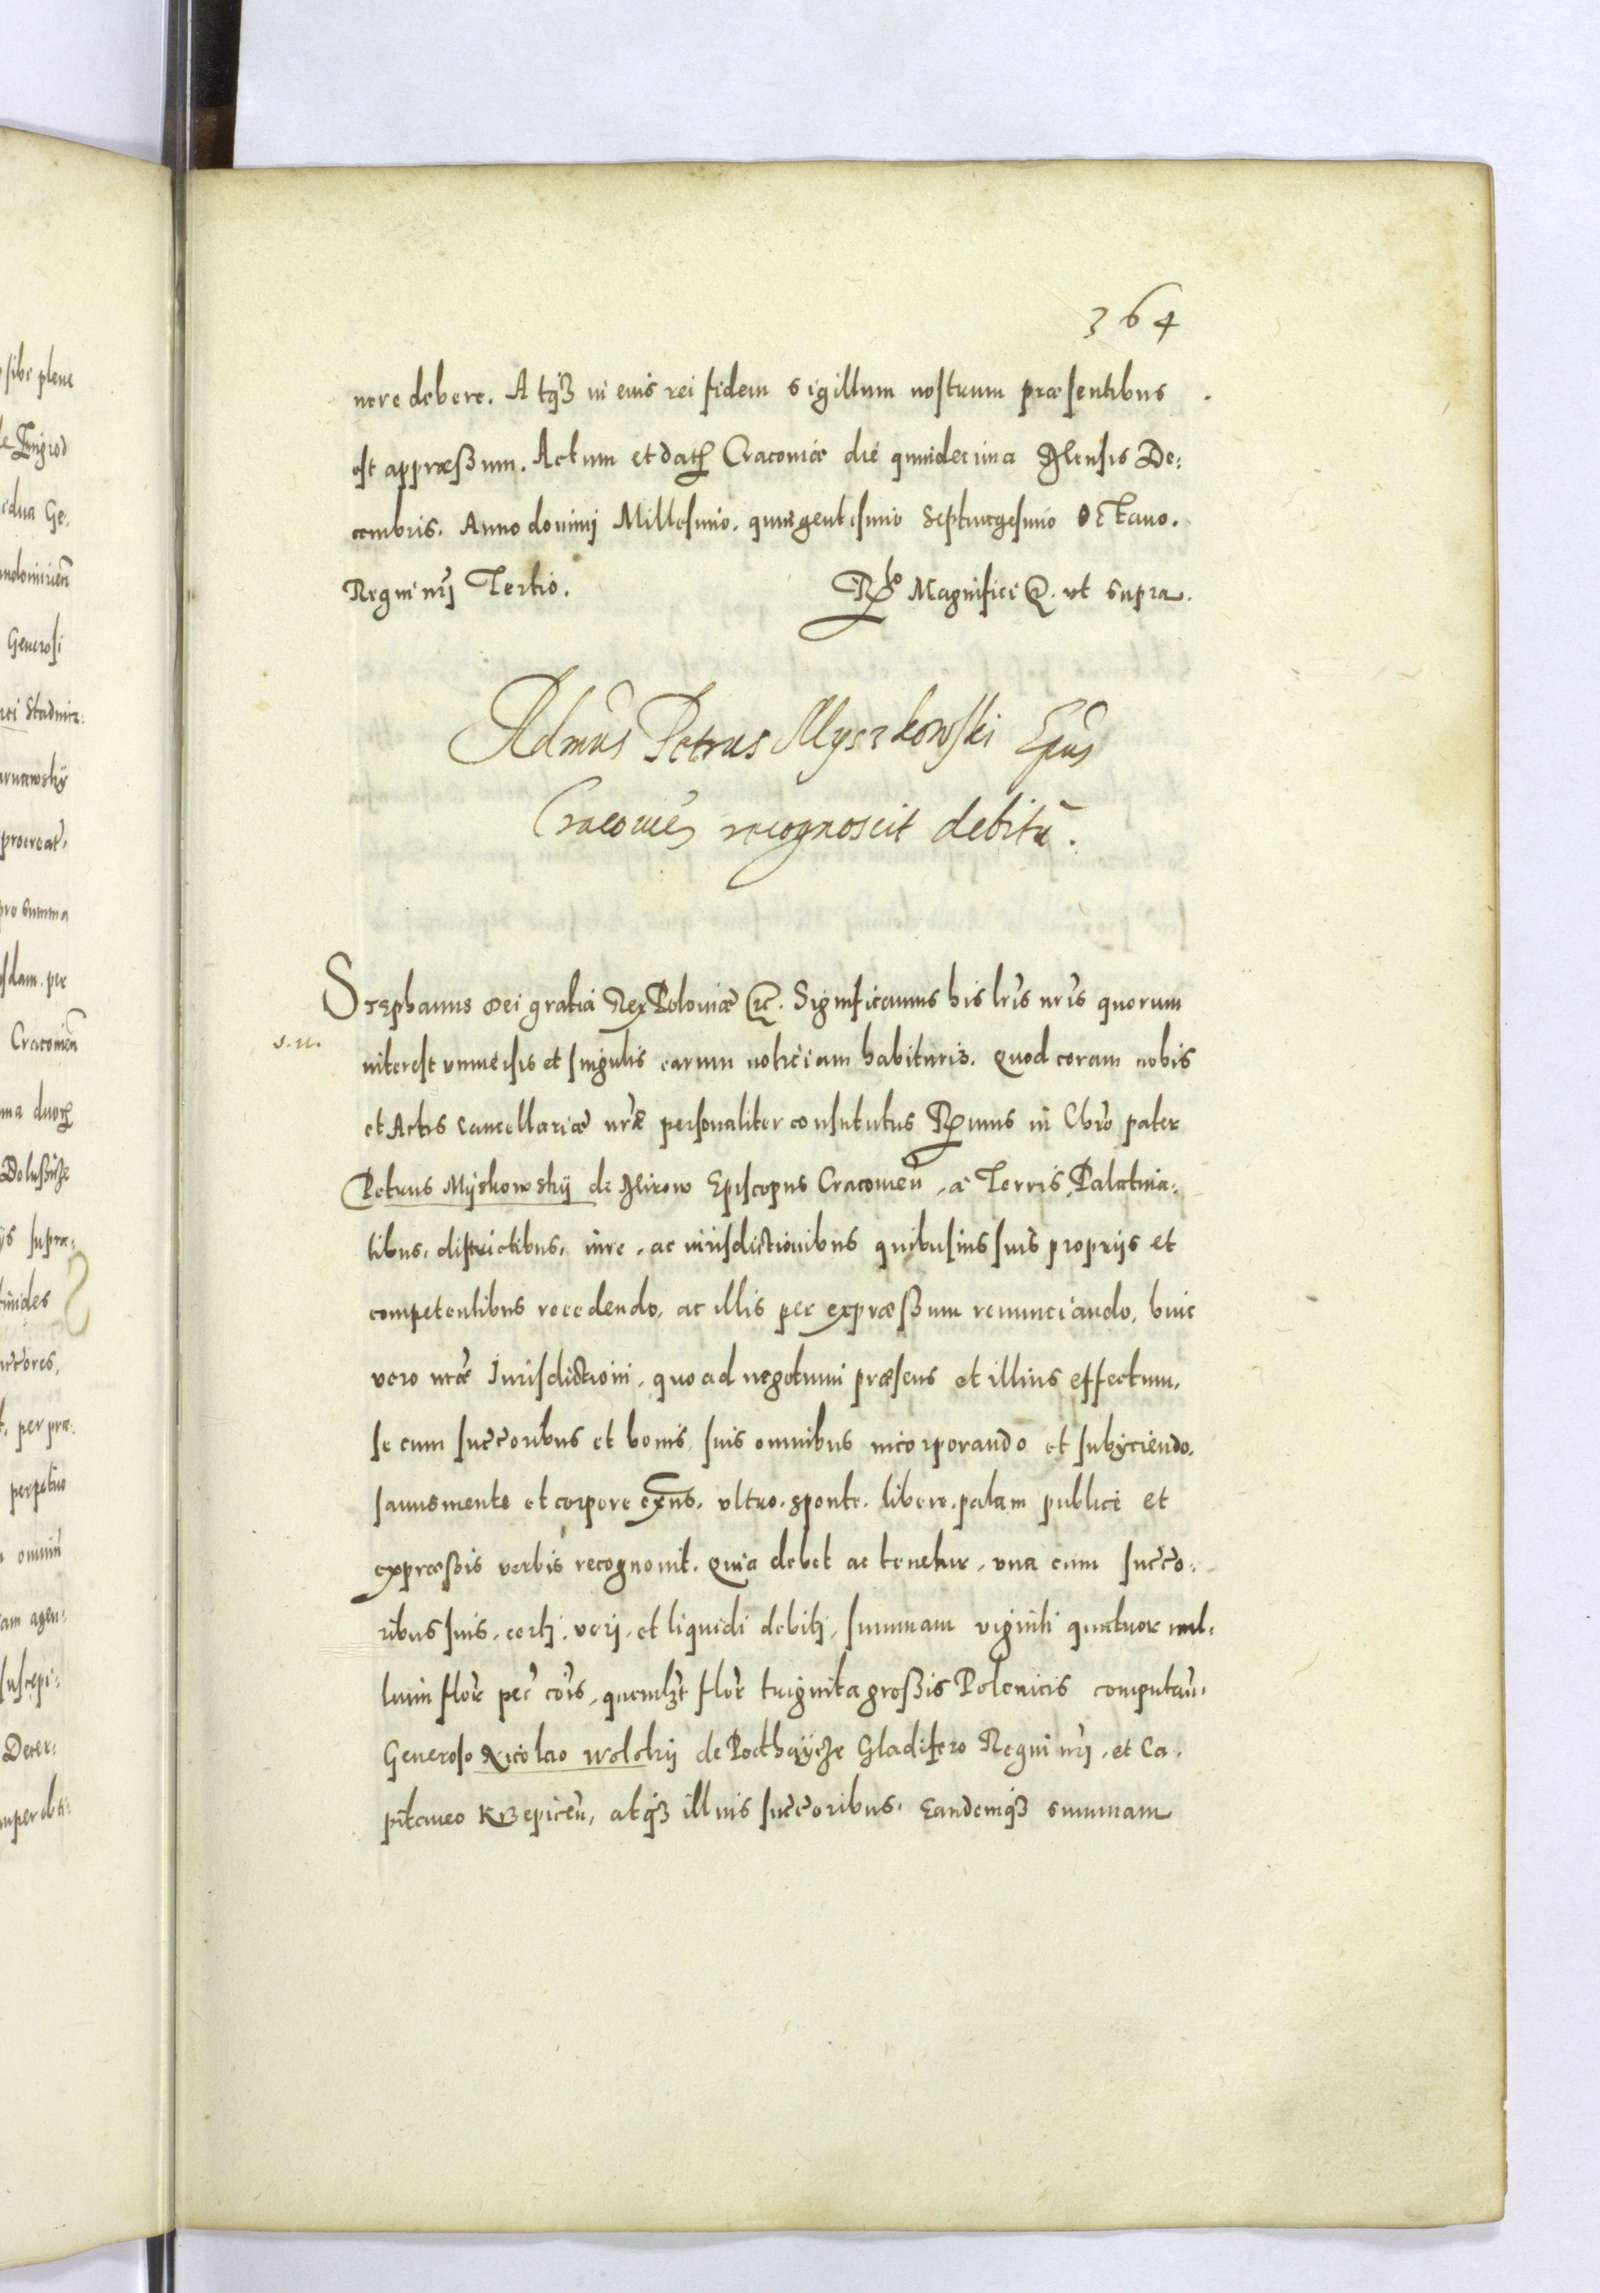 364
nere debere. Atq3 in eius rei fidem sigillum nostrum præsentibus
est appræßum. Actum et dat Cracoviæ die quindecima Mensis De:
cembris. Anno dominij Millesimo. quingentesimo Septuagesimo Octavo.
Regni nrj Tertio. Rlo Magnifici &. ut supra.
Rdmus Petrus Myszkowski Epus
Cracovien recognoscit debitū.
Stephanus Dei gratia Rex Poloniæ &c. Significamus his lris nris quorum
s. n.
interest universis et singulis earum noticiam habituris. Quod coram nobis
et Actis Cancellariæ nræ personaliter constitutus Rmus in Chro pater
Petrus Myskowskÿ de Mirow Episcopus Cracovien, a Terris, Palatina:
tibus, districtibus, iure, ac iurisdictionibus quibusuis suis proprijs et
competentibus recedendo, ac illis per expræßum renunciando, huic
vero nræ Jurisdictioni, quo ad negotium præsens et illius effectum,
se cum succoribus et bonis suis omnibus incorporando et subijciendo.
sanus mente et corpore exns. ultro. sponte. libere. palam publice et
expræßis verbis recognovit. Quia debet ac tenetur, una cum succo:
ribus suis, certj. verj, et liquidi debitj, summam viginti quatuor mil:
lium flor pec cois, quemlzt flor triginta großis Polonicis computan.
Generoso Nicolao Wolskÿ de Podhaycze Gladifero Regni nrj, et Ca:
pitaneo Krzepicen, atq3 illius succoribus. Eandemq3 summam
sibi plene
edua Ge:
Generosi
procreat,
pro summa
Cracovien
perpetuo